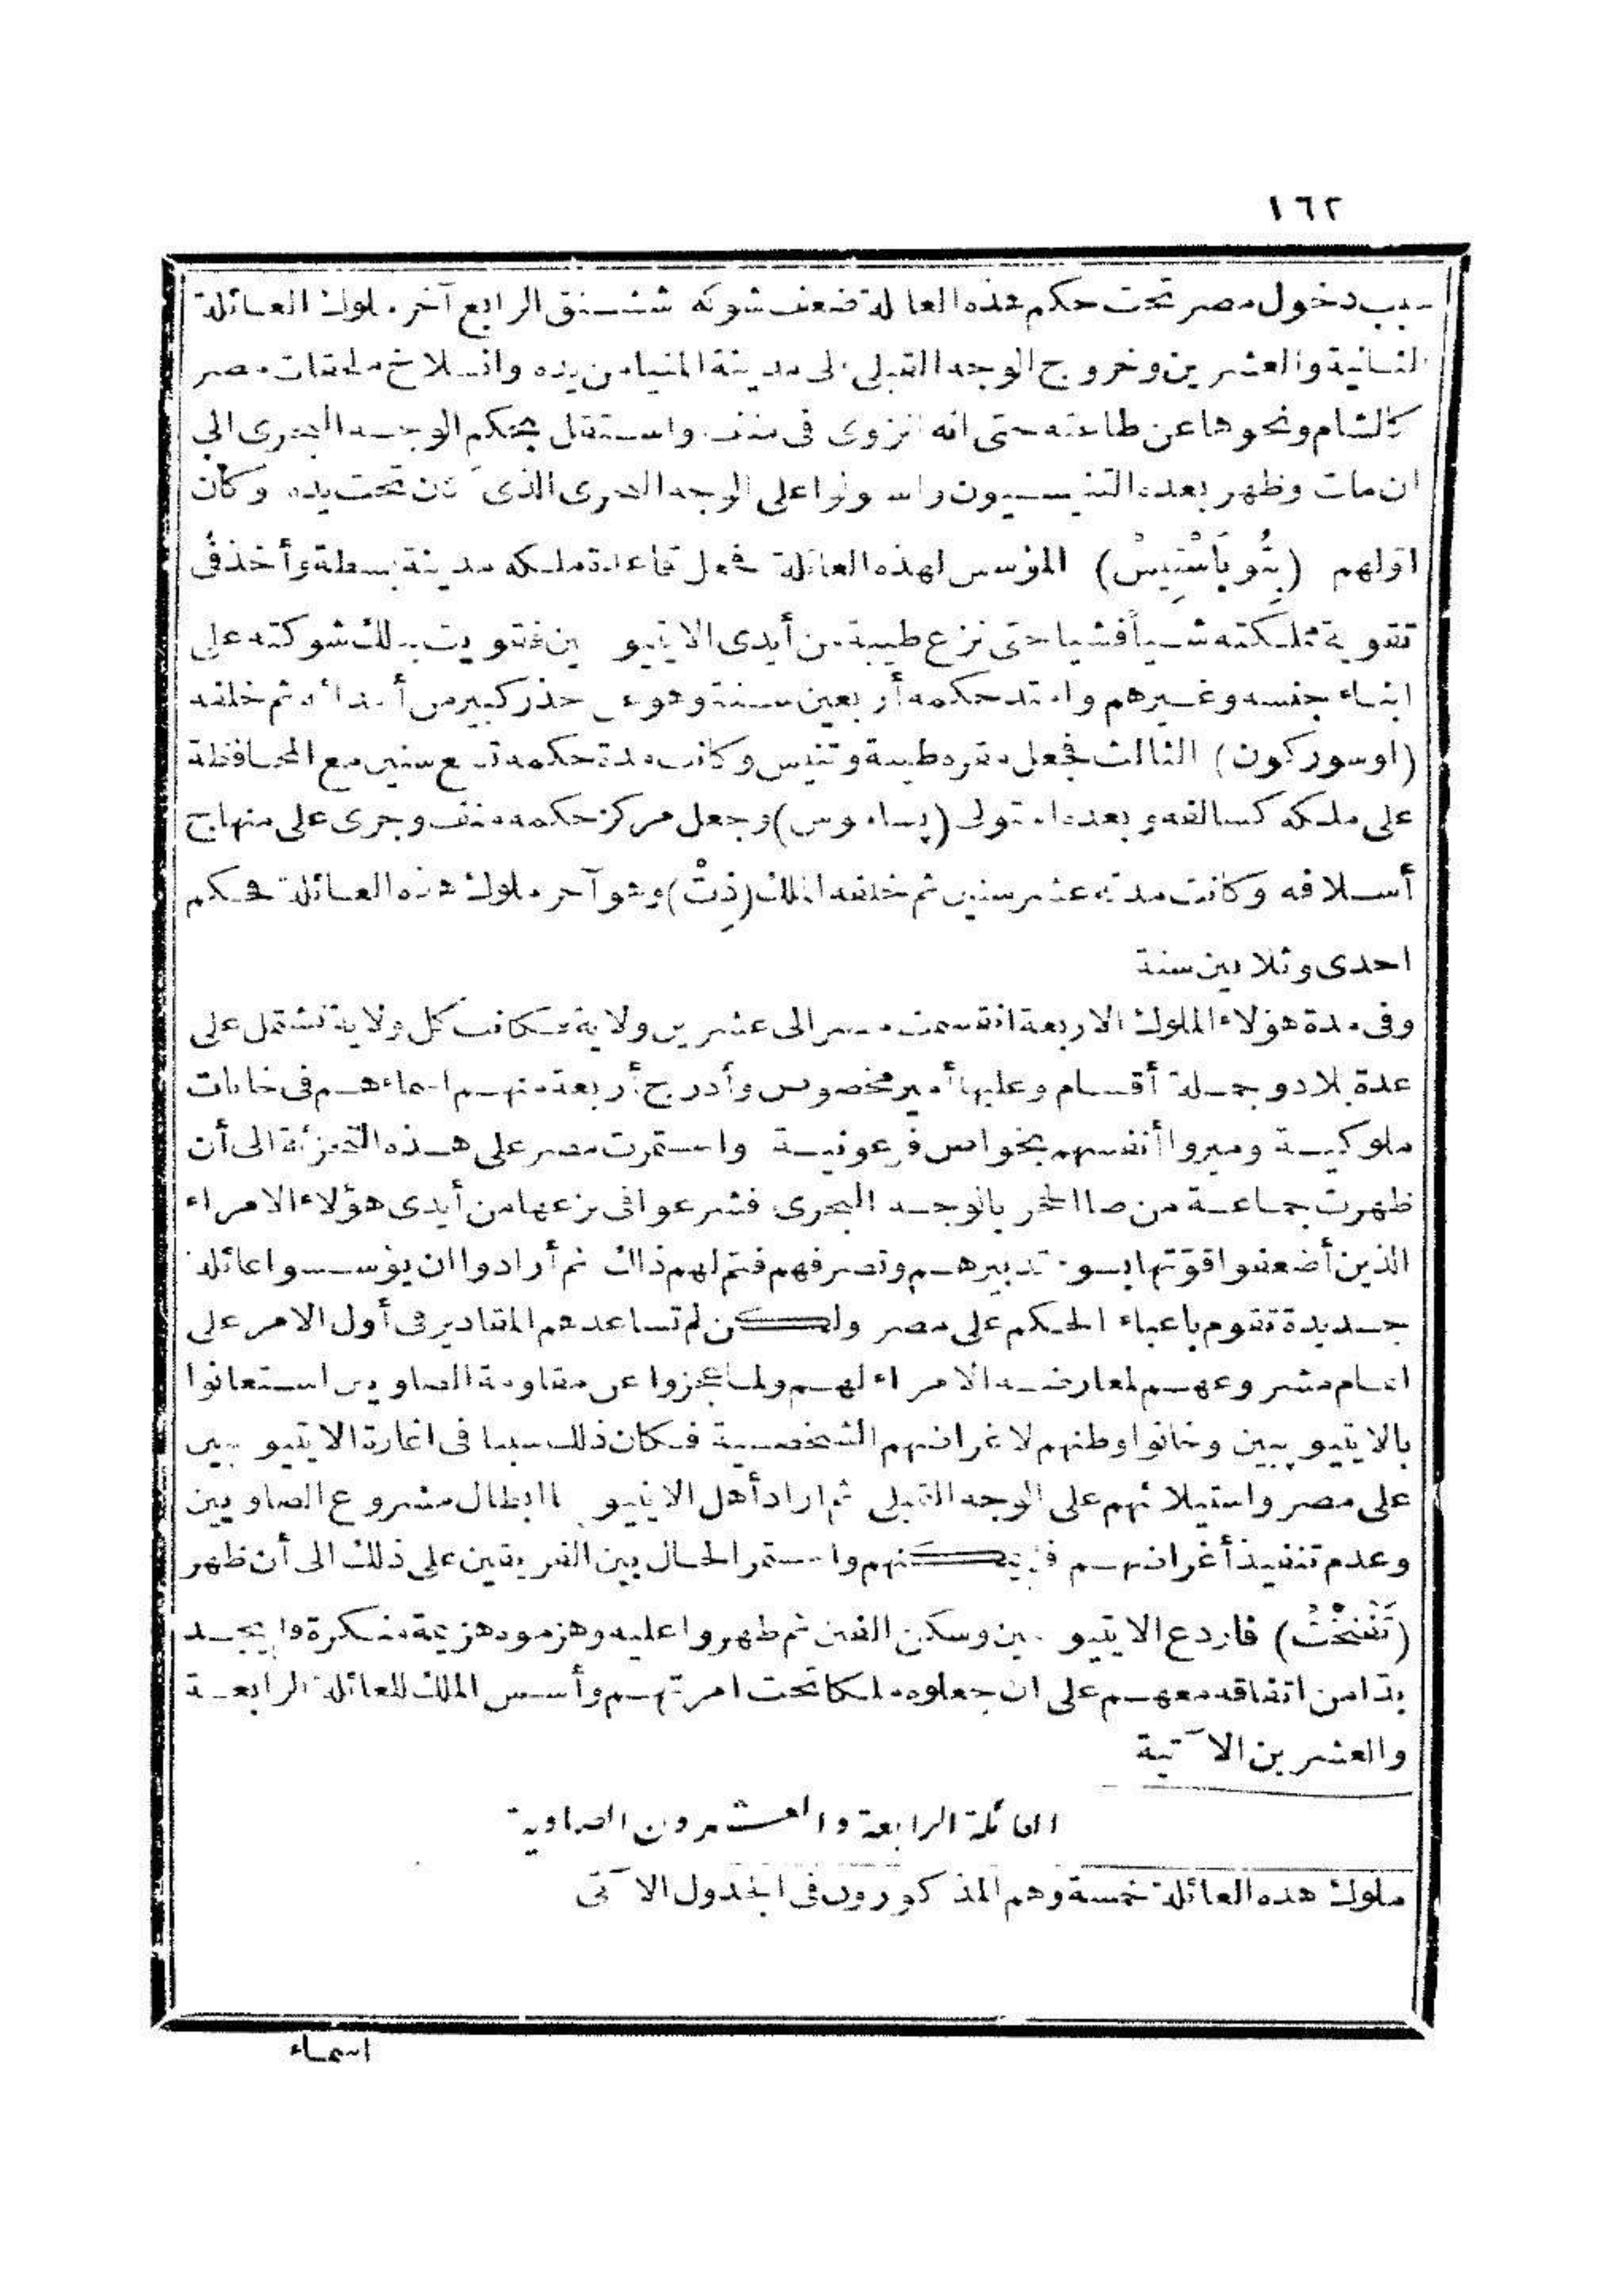 ١٦٢
سبب دخول مصر تحت حكم هذه العائلة ضعف شوكة ششنق الرابع آخر ملوك العائلة
الثانية والعشرين وخروج الوجه القبلى الى مدينة المنيا من يده وانسلاخ ملحقات مصر
كالشام ونحوها عن طاعته حتى انه انزوى فى منف واستقل بحكم الوجه البحرى الى
ان مات وظهر بعده التنيسيون واستولوا على الوجه البحرى الذى كان تحت يده وكان
اوّلهم (پِتُوبَاسْتِيسْ) المؤسس لهذه العائلة فجعل قاعدة ملكه مدينة بسطة وأخذ فى
تقوية مملكته شيأ فشيأ حتى نزع طيبة من أيدى الايتيوپيين فتقويت بذلك شوكته على
ابناء جنسه وغيرهم وامتد حكمه أربعين سنة وهو على حذر كبير من أعدائه ثم خلفه
(اوسوركون) الثالث فجعل مقره طيبة وتنيس وكانت مدة حكمه تسع سنين مع المحافظة
على ملكه كسالفه وبعده تولى (پساموس) وجعل مركز حكمه منف وجرى على منهاج
أسلافه وكانت مدته عشر سنين ثم خلفه الملك (زِتْ) وهو آخر ملوك هذه العائلة فحكم
احدى وثلاثين سنة
وفى مدة هؤلاء الملوك الاربعة انقسمت مصر الى عشرين ولاية فكانت كل ولاية تشتمل على
عدة بلاد وجملة أقسام وعليها أمير مخصوص وأدرج أربعة منهم اسماءهم فى خانات
ملوكية وميزوا أنفسهم بخواص فرعونية واستمرت مصر على هذه التجزئة الى أن
ظهرت جماعة من صا الحجر بالوجه البحرى فشرعوا فى نزعها من أيدى هؤلاء الامراء
الذين أضعفوا قوّتها بسوء تدبيرهم وتصرفهم فتم لهم ذلك ثم أرادوا ان يؤسسوا عائلة
جديدة تقوم باعباء الحكم على مصر ولكن لم تساعدهم المقادير فى أول الامر على
اتمام مشروعهم لمعارضة الامراء لهم ولما عجزوا عن مقاومة الصاويين استعانوا
بالايتيوپيين وخانوا وطنهم لاغراضهم الشخصية فكان ذلك سببا فى اغارة الايتيوپيين
على مصر واستيلائهم على الوجه القبلى ثم اراد أهل الايتيوپيا ابطال مشروع الصاويين
وعدم تنفيذ أغراضهم فلم يمكنهم واستمر الحال بين الفريقين على ذلك الى أن ظهر
(تَفْنَخْتُ) فازدع الايتيوپيين وسكن الفتن ثم ظهروا عليه وهزموه هزيمة منكرة ولم يجد
بدّا من اتفاقه معهم على ان جعلوه ملكا تحت امرتهم وأسس الملك للعائلة الرابعة
والعشرين الآتية
العائلة الرابعة والعشرون الصاوية
ملوك هذه العائلة خمسة وهم المذكورون فى الجدول الآتى
اسماء